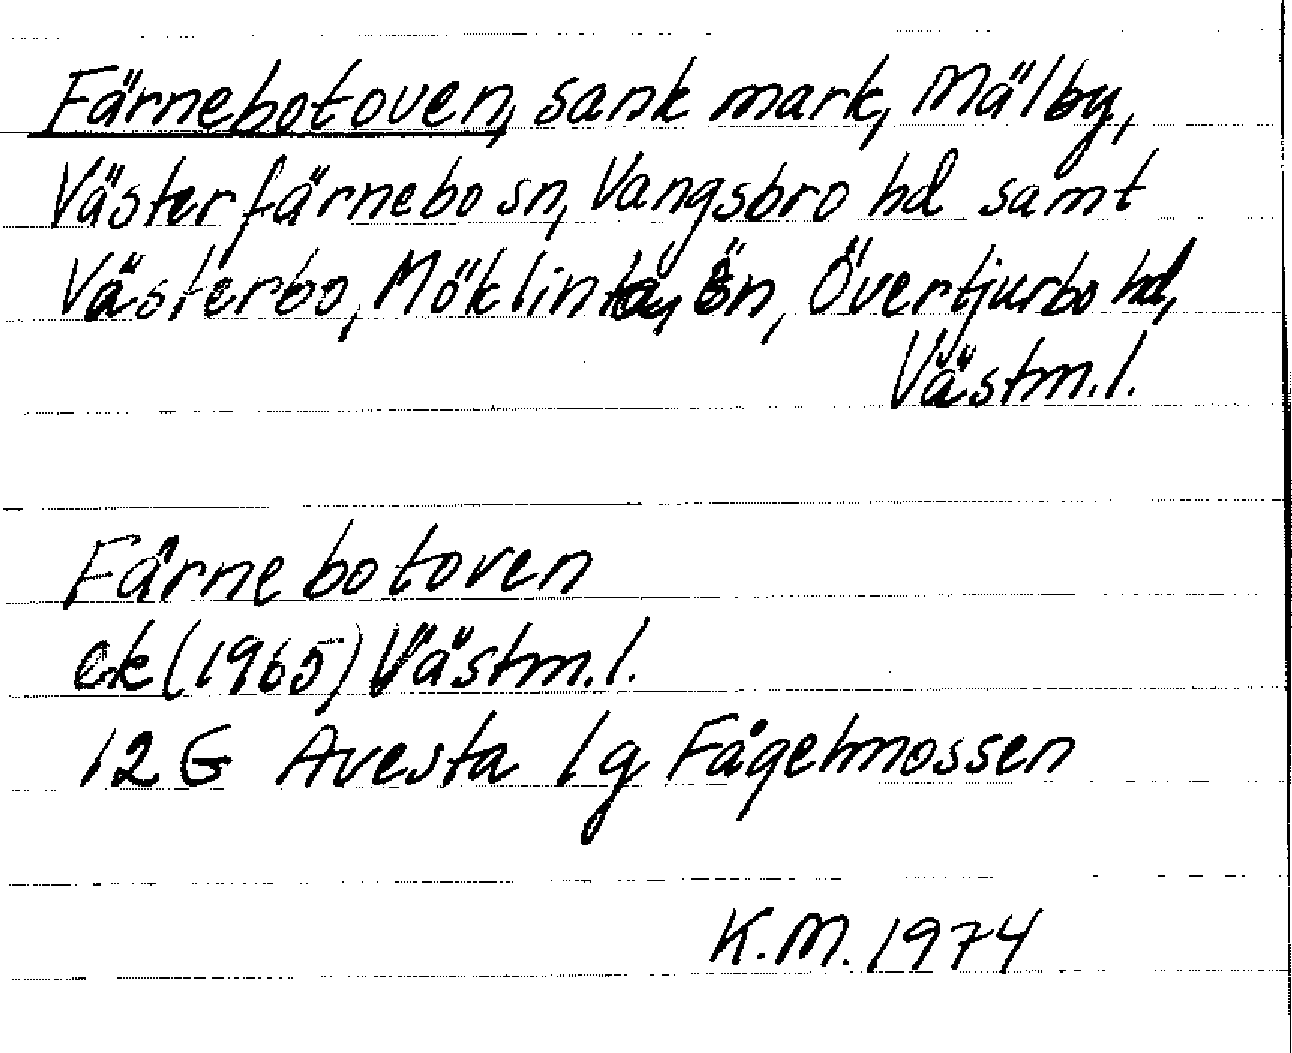 Färnebotoven, sank mark, Mälby,
Västerfärnebo sn, Vangsbro hd samt
Västerbo, Möklinta, sn, Övertjurbo hd,
Västm.l.
Färnebotoven
ek (1965) Västm.l.
12 G Avesta 1g Fågelmossen
K.M. 1974